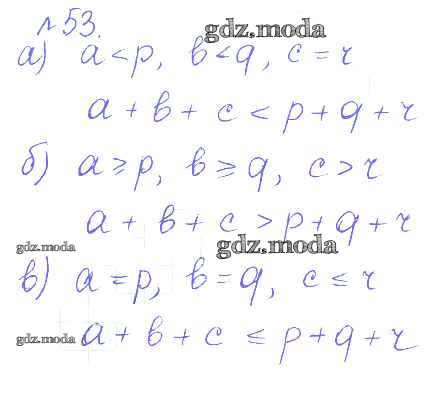 №53. gdz.moda
а) a < p, b < q, c = r
a + b + c < p + q + r
б) a ≥ p, b ≥ q, c > r
a + b + c > p + q + r
gdz.moda gdz.moda
в) a = p, b = q, c ≤ r
gdz.moda a + b + c ≤ p + q + r